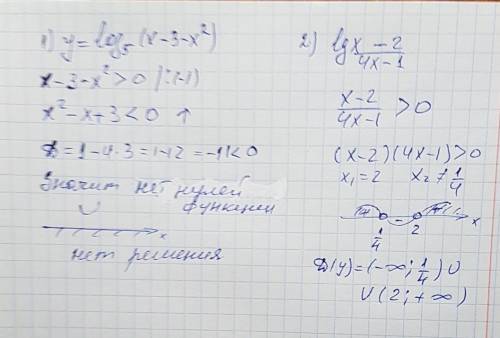 1) y = log₅(x-3-x²)
x-3-x²>0 |:(-1)
x²-x+3<0 ↑
D=1-4·3=1-12=-11<0
Значит нет нулей
функции
x
нет решения
2) lg x-2/4x-1
x-2/4x-1 >0
(x-2)(4x-1)>0
x₁=2 x₂≠1/4
1/4 2 x
D(y)=(-∞; 1/4)∪
∪(2;+∞)